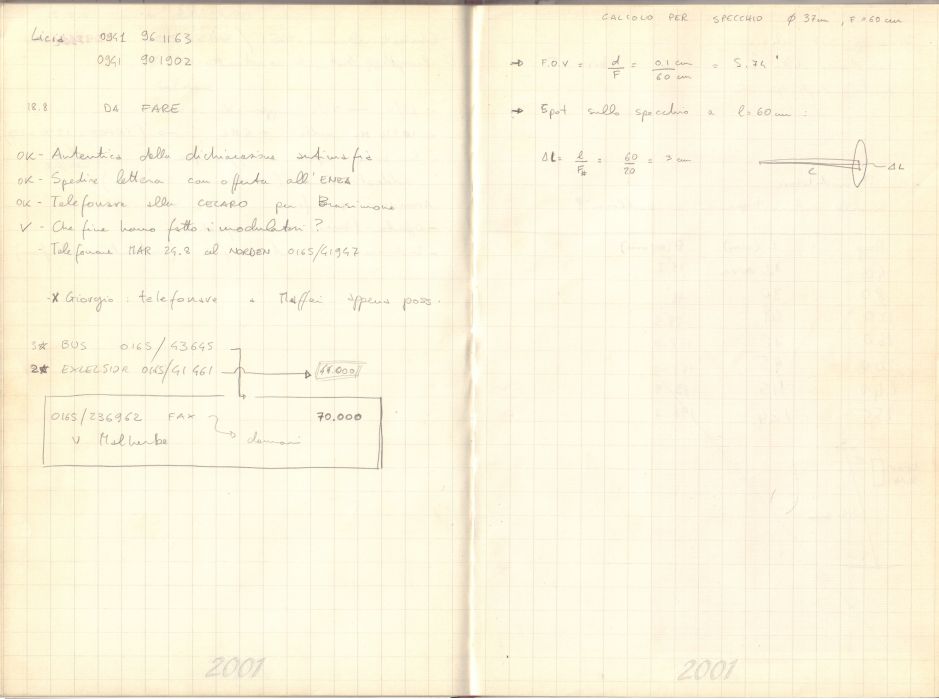 Licia 0941 961163
0941 901902
18.8 DA FARE
OK - Autentica della dichiarazione antimafia
OK - Spedire lettera con offerta all'ENEA
OK - Telefonare alla CECARO per Brasimone
V - Che fine hanno fatto i modulatori?
- Telefonare MAR 24.8 al NORDEN 0165/41947
- X Giorgio: telefonare a Maffei appena poss.
3☆ BUS 0165/43645
2☆ EXCELSIOR 0165/41461 → 44.000
0165/236962 FAX 70.000
V Malherbe domani
2001
CALCOLO PER SPECCHIO ø 37cm, F=60 cm
→ F.O.V = d/F = 0.1 cm/60 cm = 5.74'
→ Spot sullo specchio a l=60 cm:
ΔL = l/F# = 60/20 = 3 cm
ΔL
2001